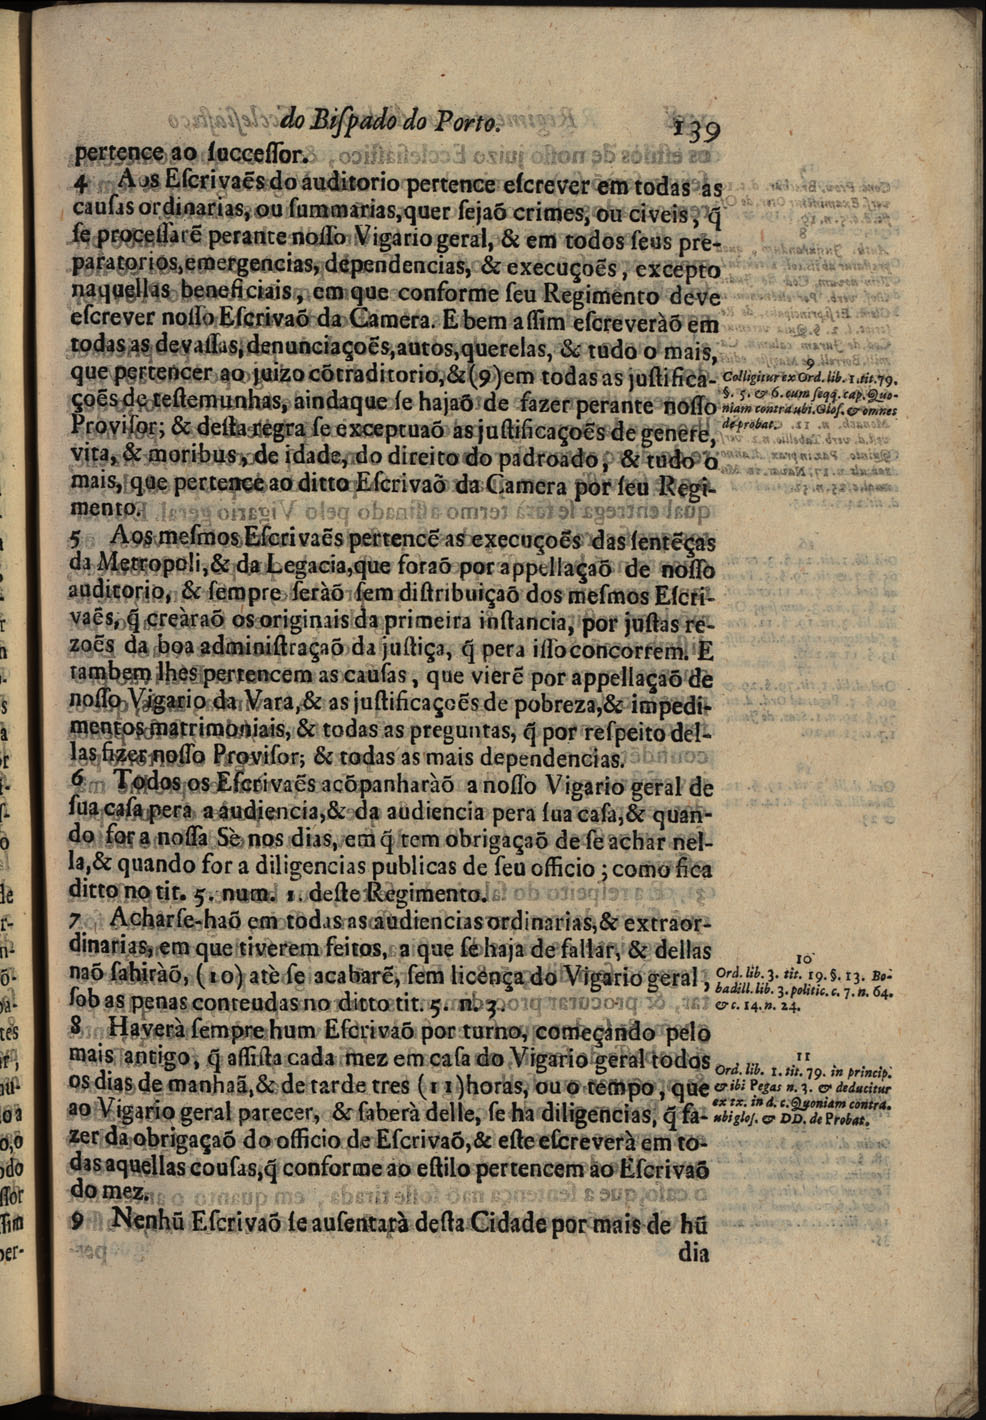 do Biſpado do Porto. 139
pertence ao ſucceſſor.
4 Aos Eſcrivaẽs do auditorio pertence eſcrever em todas as
cauſas ordinarias, ou ſummarias, quer ſejaõ crimes, ou civeis, q̃
ſe proceſſarẽ perante noſſo Vigario geral, & em todos ſeus pre-
paratorios, emergencias, dependencias, & execuçoẽs, excepto
naquellas beneficiais, em que conforme ſeu Regimento deve
eſcrever noſſo Eſcrivaõ da Camera. E bem aſſim eſcreveràõ em
todas as devaſſas, denunciaçoẽs, autos, querelas, & tudo o mais,
que pertencer ao juizo cõtraditorio, & (9) em todas as juſtifica-
çoẽs de teſtemunhas, aindaque ſe hajaõ de fazer perante noſſo
Proviſor; & deſta regra ſe exceptuaõ as juſtificaçoẽs de genere,
vita, & moribus, de idade, do direito do padroado, & tudo o
mais, que pertence ao ditto Eſcrivaõ da Camera por ſeu Regi-
mento.
9
Colligitur ex Ord. lib. 1. tit. 79.
§. 5. & 6. cum ſeqq. cap. Quo-
niam contra ubi Gloſ. & omnes
de probat.
5 Aos meſmos Eſcrivaẽs pertencẽ as execuçoẽs das ſentẽças
da Metropoli, & da Legacia, que foraõ por appellaçaõ de noſſo
auditorio, & ſempre ſeràõ ſem diſtribuiçaõ dos meſmos Eſcri-
vaẽs, q̃ creàraõ os originais da primeira inſtancia, por juſtas re-
zoẽs da boa adminiſtraçaõ da juſtiça, q̃ pera iſſo concorrem. E
tambem lhes pertencem as cauſas, que vierẽ por appellaçaõ de
noſſo Vigario da Vara, & as juſtificaçoẽs de pobreza, & impedi-
mentos matrimoniais, & todas as preguntas, q̃ por reſpeito del-
las fizer noſſo Proviſor; & todas as mais dependencias.
6 Todos os Eſcrivaẽs acõpanharàõ a noſſo Vigario geral de
ſua caſa pera a audiencia, & da audiencia pera ſua caſa, & quan-
do for a noſſa Sè nos dias, em q̃ tem obrigaçaõ de ſe achar nel-
la, & quando for a diligencias publicas de ſeu officio; como fica
ditto no tit. 5. num. 1. deſte Regimento.
7 Acharſe-haõ em todas as audiencias ordinarias, & extraor-
dinarias, em que tiverem feitos, a que ſe haja de fallar, & dellas
naõ ſahiràõ, (10) atè ſe acabarẽ, ſem licença do Vigario geral,
ſob as penas conteudas no ditto tit. 5. n. 3.
10
Ord. lib. 3. tit. 19. §. 13. Bo-
badill. lib. 3. politic. c. 7. n. 64.
& c. 14. n. 24.
8 Haverà ſempre hum Eſcrivaõ por turno, começando pelo
mais antigo, q̃ aſſiſta cada mez em caſa do Vigario geral todos
os dias de manhaã, & de tarde tres (11) horas, ou o tempo, que
ao Vigario geral parecer, & ſaberà delle, ſe ha diligencias, q̃ fa-
zer da obrigaçaõ do officio de Eſcrivaõ, & eſte eſcreverà em to-
das aquellas couſas, q̃ conforme ao eſtilo pertencem ao Eſcrivaõ
do mez.
11
Ord. lib. 1. tit. 79. in princip.
& ibi Pegas n. 3. & deducitur
ex tx. in d. c. Quoniam contra.
ubi gloſ. & DD. de Probat.
9 Nenhũ Eſcrivaõ ſe auſentarà deſta Cidade por mais de hũ
dia